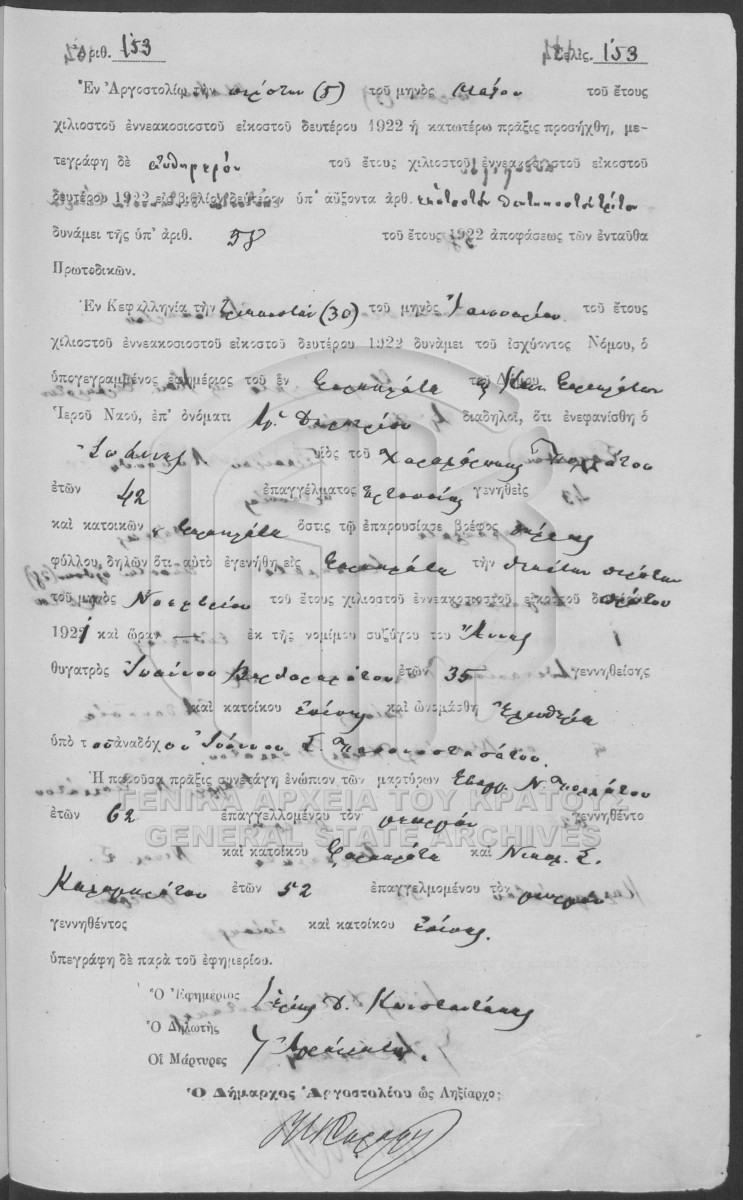 Ἀριθ. 153 Σελὶς. 153
Ἐν Ἀργοστολίῳ τὴν πέμπτην (5) τοῦ μηνὸς Μαΐου τοῦ ἔτους
χιλιοστοῦ ἐννεακοσιοστοῦ εἰκοστοῦ δευτέρου 1922 ἡ κατωτέρω πρᾶξις προσήχθη, με-
τεγράφη δὲ αὐθημερόν τοῦ ἔτους χιλιοστοῦ ἐννεακοσιοστοῦ εἰκοστοῦ
δευτέρου 1922 εἰς βιβλίον δεύτερον ὑπ' αὔξοντα ἀριθ. ἑκατοστὸν πεντηκοστὸν τρίτον
δυνάμει τῆς ὑπ' ἀριθ. 58 τοῦ ἔτους 1922 ἀποφάσεως τῶν ἐνταῦθα
Πρωτοδικῶν.
Ἐν Κεφαλληνίᾳ τὴν τριακοστὴν (30) τοῦ μηνὸς Ἰανουαρίου τοῦ ἔτους
χιλιοστοῦ ἐννεακοσιοστοῦ εἰκοστοῦ δευτέρου 1922 δυνάμει τοῦ ἰσχύοντος Νόμου, ὁ
ὑπογεγραμμένος ἐφημέριος τοῦ ἐν Φαρακλάτα τοῦ Δήμου Κοιν. Φαρακλάτων
Ἱεροῦ Ναοῦ, ἐπ' ὀνόματι Ἁγ. Δημητρίου διαδηλοῖ, ὅτι ἐνεφανίσθη ὁ
Ἰωάννης υἱὸς τοῦ Χαραλάμπους
ἐτῶν 42 ἐπαγγέλματος γενηθεὶς
καὶ κατοικῶν Φαρακλάτα ὅστις τῷ ἐπαρουσίασε βρέφος θήλεος
φύλλου, δηλῶν ὅτι αὐτὸ ἐγενήθη εἰς Φαρακλάτα τὴν δεκάτην πέμπτην
τοῦ μηνὸς Νοεμβρίου τοῦ ἔτους χιλιοστοῦ ἐννεακοσιοστοῦ εἰκοστοῦ πρώτου
1921 καὶ ὥραν — ἐκ τῆς νομίμου συζύγου του Ἄννης
θυγατρὸς Ἰωάννου ἐτῶν 35 γεννηθείσης
καὶ κατοίκου ἐπίσης καὶ ὠνομάσθη Ἐλευθερία
ὑπὸ τοῦ ἀναδόχου Ἰωάννου Σ.
Ἡ παροῦσα πρᾶξις συνετάγη ἐνώπιον τῶν μαρτύρων Εὐαγγ. Ν.
ἐτῶν 62 ἐπαγγελλομένου τὸν γεωργόν γεννηθέντο
καὶ κατοίκου Φαρακλάτα καὶ Νικολ. Σ.
Καλογηράτου ἐτῶν 52 ἐπαγγελμομένου τὸν γεωργόν
γεννηθέντος καὶ κατοίκου ἐπίσης.
ὑπεγράφη δὲ παρὰ τοῦ ἐφημερίου.
Ὁ Ἐφημέριος Ἱερεὺς Δ.
Ὁ Δηλωτὴς
Οἱ Μάρτυρες Ἀγράμματοι.
Ὁ Δήμαρχος Ἀργοστολίου ὡς Ληξίαρχο;
ΓΕΝΙΚΑ ΑΡΧΕΙΑ ΤΟΥ ΚΡΑΤΟΥΣ
GENERAL STATE ARCHIVES